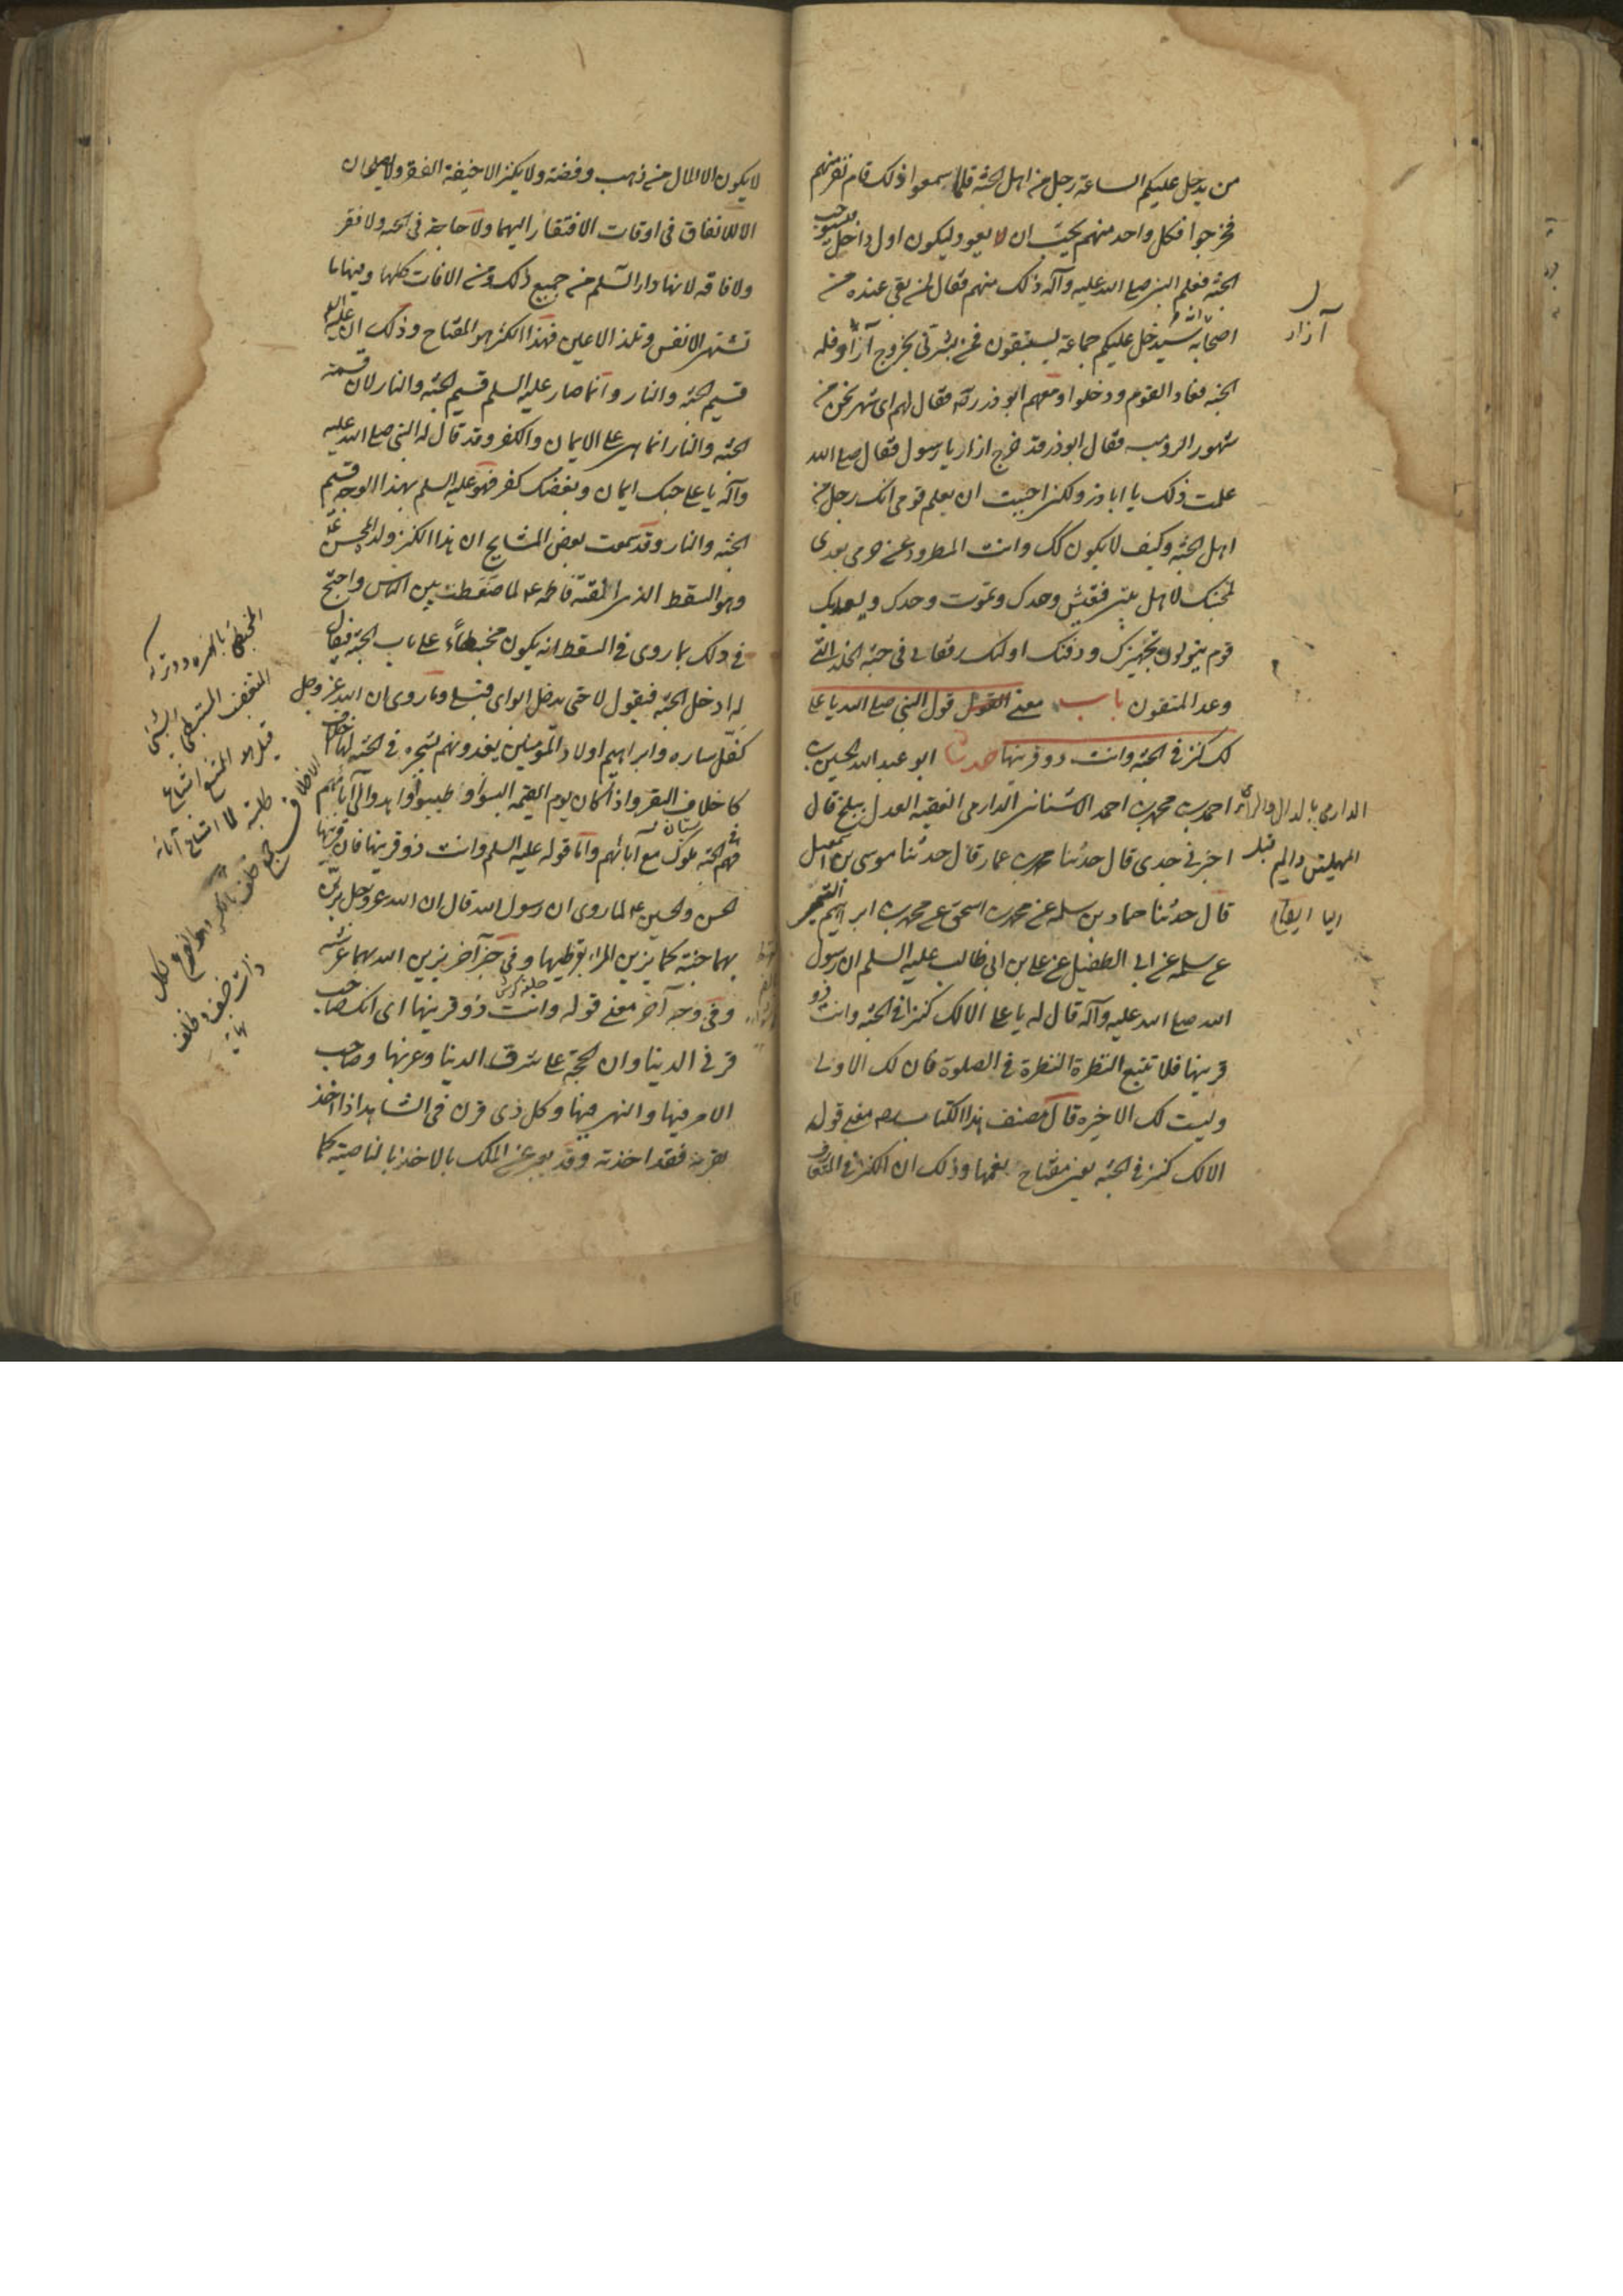 من يدخل عليكم الساعة رجل من اهل الجنة فلما سمعوا ذلك قام نفر منهم
فخرجوا فكل واحد منهم يحب ان لا يعود ليكون اول داخل فيستوجب
الجنة فعلم النبي صلى الله عليه وآله ذلك منهم فقال لمن بقى عنده من
اصحابه سيدخل عليكم جماعة يستبقون فمن بشرنى بخروج آزار فله
الجنة فعاد القوم ودخلوا ومعهم ابو ذر ره فقال لهم اى شهر نحن من
شهور الرومية فقال ابو ذر قد خرج ازار يا رسول فقال صلى الله
علمت ذلك يا ابا ذر ولكنى احببت ان يعلم قومى انك رجل من
اهل الجنة وكيف لا يكون لك وانت المطرود عن حرمى بعدى
لمحبتك لاهل بيتى فتعيش وحدك وتموت وحدك ويسعد بك
قوم يتولون تجهيزك ودفنك اولئك رفقائى فى جنة الخلد التى
وعد المتقون باب معنى القول قول النبى صلى الله يا على
لك كنز فى الجنة وانت ذو قرنيها حدثنا ابو عبد الله الحسين بن
احمد بن محمد بن احمد الاشنانى الدارمى الفقيه العدل ببلخ قال
اخبرنى جدى قال حدثنا محمد بن عمار قال حدثنا موسى بن اسمعيل
قال حدثنا حماد بن سلمه عن محمد بن اسحق عن محمد بن ابراهيم التيمى
عن سلمه عن ابى الطفيل عن على بن ابى طالب عليه السلم ان رسول
الله صلى الله عليه وآله قال له يا على الا لك كنزا فى الجنة وانت ذو
قرنيها فلا تتبع النظرة النظرة فى الصلوة فان لك الاولى
وليست لك الاخيره قال مصنف هذا الكتاب ره معنى قوله
الا لك كنز فى الجنه يعنى مفتاح نعمها وذلك ان الكنز فى المتعارف
آزار
الدارمى بالدال والراء
المهملتين والميم قبل
اليا ايضا
لا يكون الا المال من ذهب وفضة ولا يكنز الا خيفة الفقر ولا يصلحان
الا للانفاق فى اوقات الافتقار اليهما ولا حاجة فى الجنه ولا فقر
ولا فاقه لانها دار السلم من جميع ذلك ومن الافات كلها وفيها ما
تشتهى الانفس وتلذ الاعين فهذا الكنز هو المفتاح وذلك انه عليه السلم
قسيم الجنة والنار وانما صار عليه السلم قسيم الجنة والنار لان قسمة
الجنة والنار انما هى على الايمان والكفر وقد قال له النبى صلى الله عليه
وآله يا على حبك ايمان وبغضك كفر فهو عليه السلم بهذا الوجه قسيم
الجنة والنار وقد سمعت بعض المشايخ ان هذا الكنز ولده المحسن ع
وهو السقط الذى القته فاطمه ع لما ضغطت بين البابين واحتج
فى ذلك بما روى فى السقط انه يكون محبنطئا على باب الجنة فيقال
له ادخل الجنة فيقول لا حتى يدخل ابواى قبلى وما روى ان الله عز وجل
كفل ساره وابراهيم اولاد المؤمنين يغذونهم بشجره فى الجنة لها اخلاف
كاخلاف البقر واذا كان يوم القيمة البسوا وطيبوا واهدوا الى آبائهم
فهم فى الجنة ملوك مع آبائهم واما قوله عليه السلم وانت ذو قرنيها فان قرنيها
الحسن والحسين ع لما روى ان رسول الله قال ان الله عز وجل يزين
بهما جنته كما يزين المراة بقرطيها وفى خبر آخر يزين الله بهما عرشه
وفى وجه آخر معنى قوله وانت ذو قرنيها اى انك صاحب
قرنى الدينا وان الحجة على شرق الدينا وغربها وصاحب
الامر فيها والنهى فيها وكل ذى قرن فى الشاهد اذا اخذ
بقرنه فقد اخذته وقد يعبر عن الملك بالاخذ بالناصية كما
المحبنطئ بالهمزة وتركه
المتغضب المستبطئ للشئ
قيل هو الممتنع امتناع
طلبة لا امتناع آباء
الاخلاف جمع خلف بالكسر وهو الضرع لكل
ذات خف وظلف
نهاية